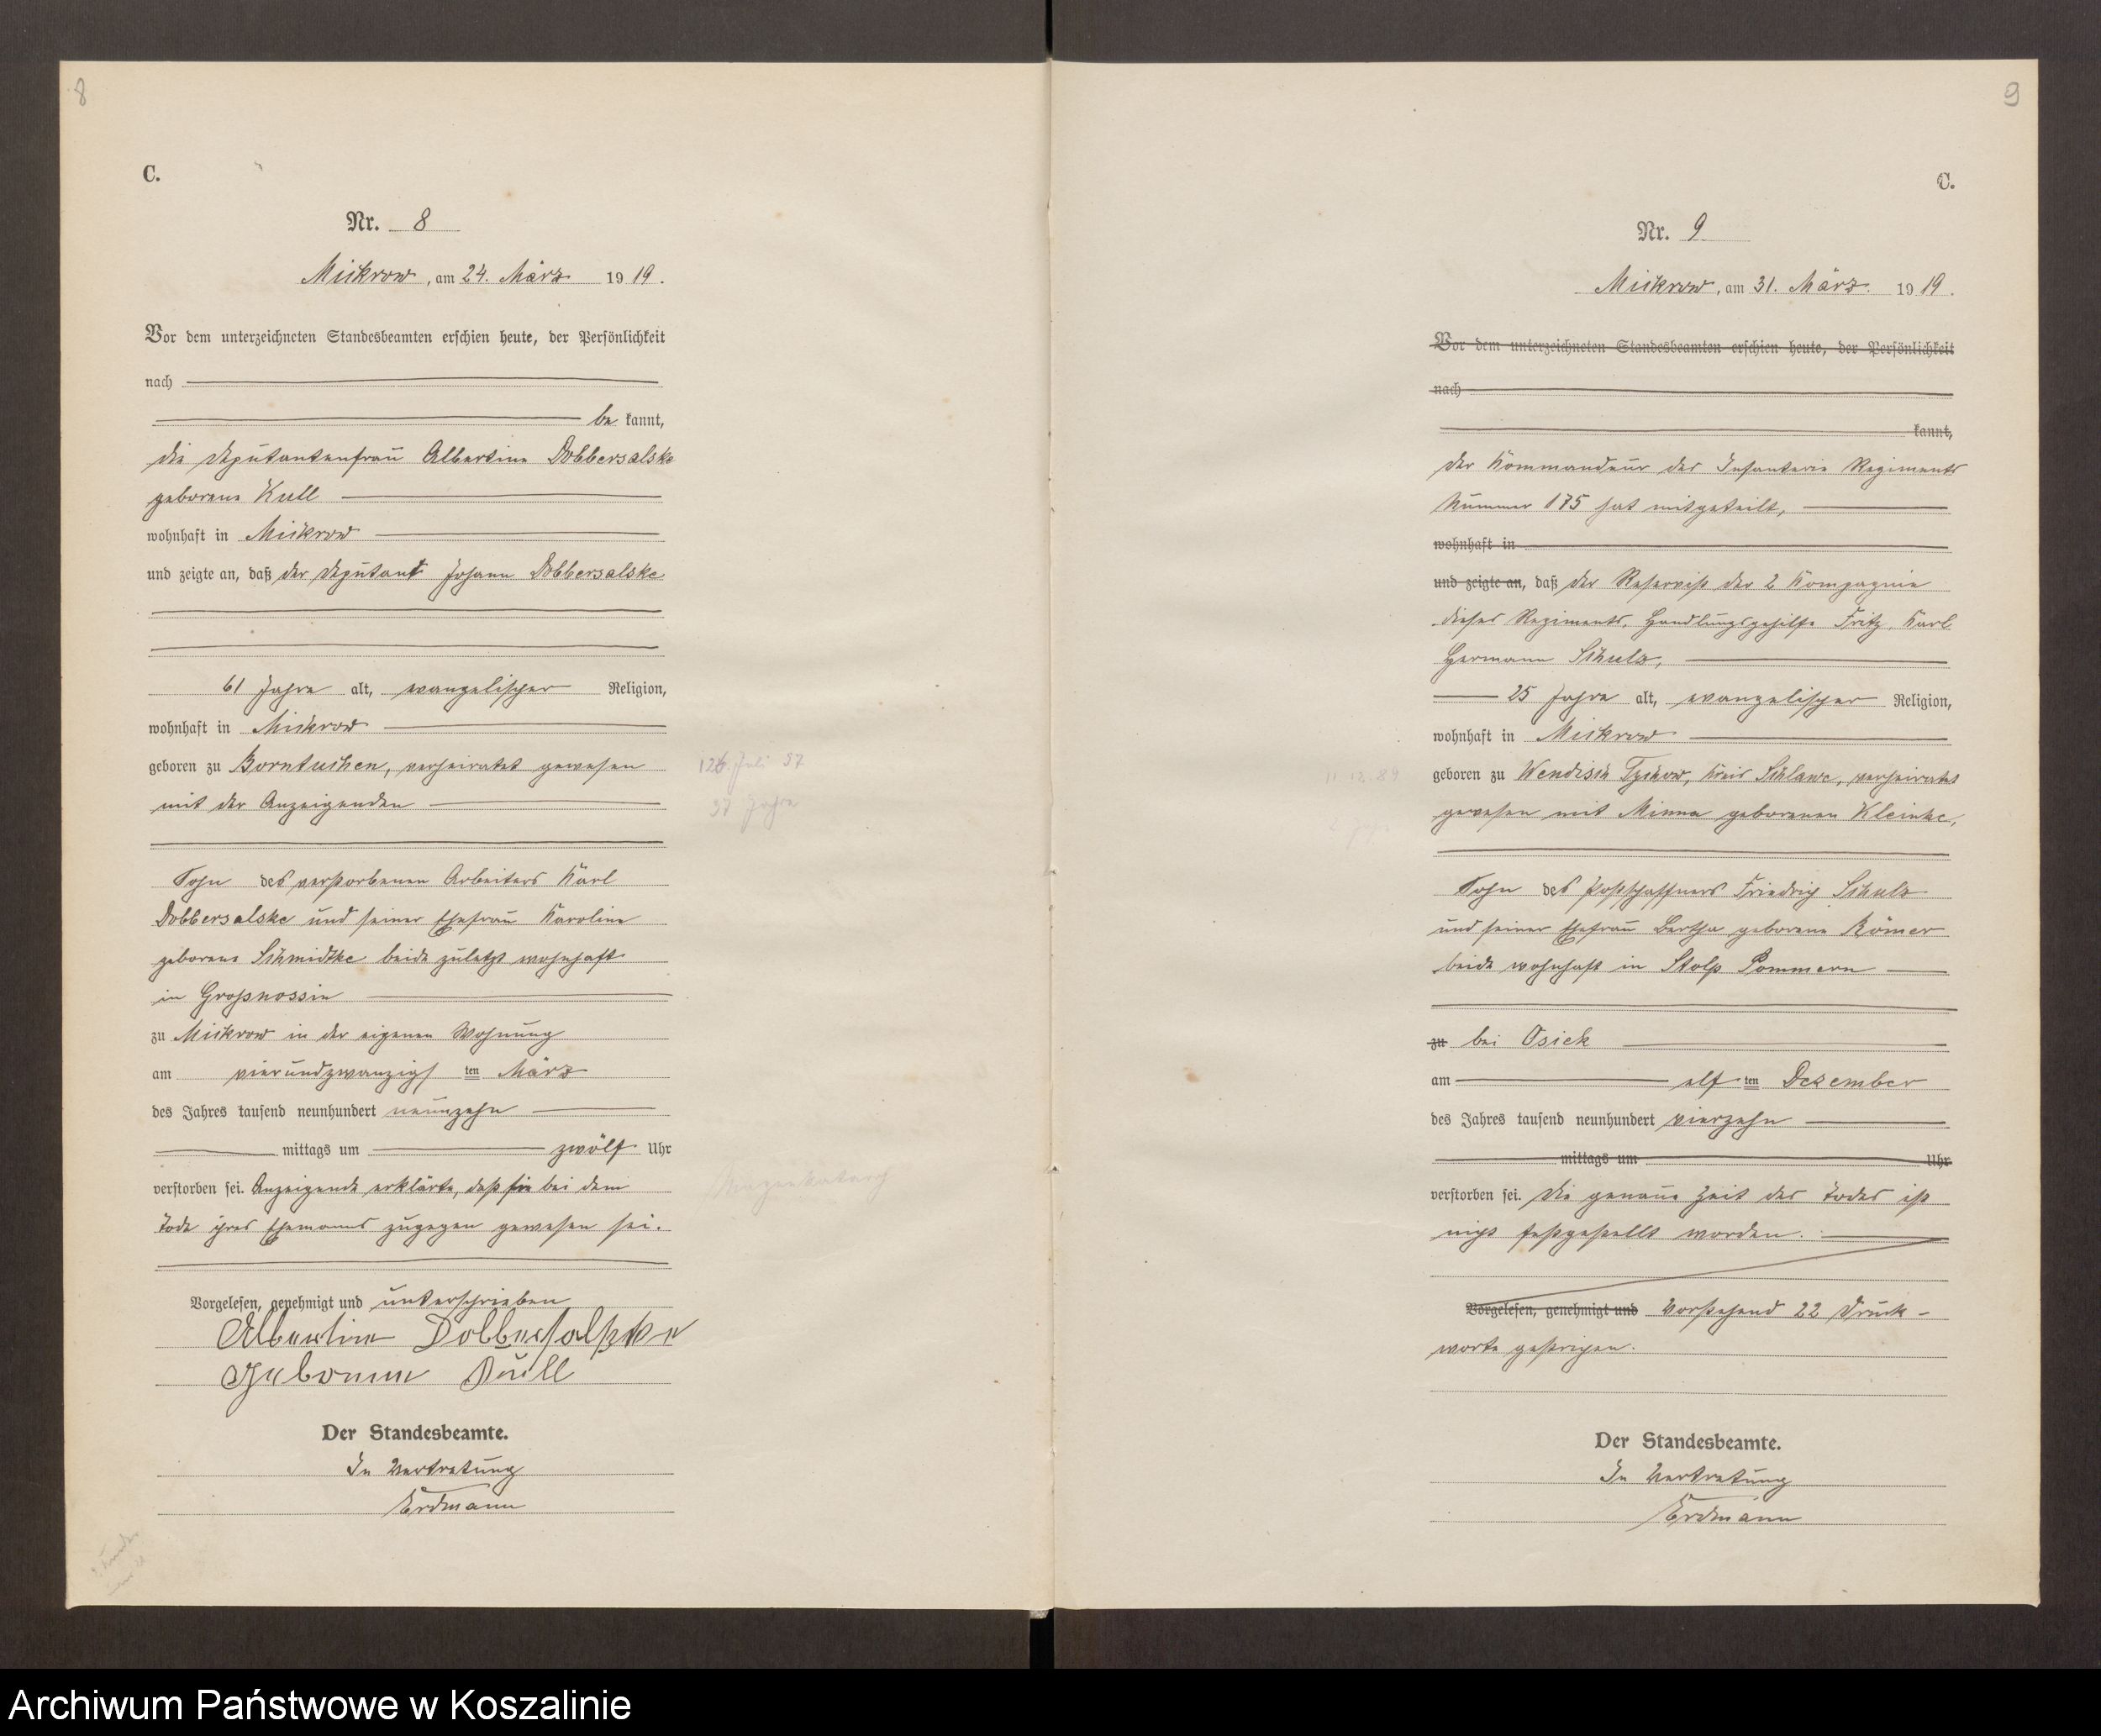 8
C.
Nr. 8
Mickrow, am 24. März 1919.
Vor dem unterzeichneten Standesbeamten erschien heute, der Persönlichkeit
nach
be kannt,
die Deputantenfrau Albertine Dobbersalske
geborene Kull
wohnhaft in Mickrow
und zeigte an, daß der Deputant Johann Dobbersalske
61 Jahre alt, evangelischer Religion,
wohnhaft in Mickrow
geboren zu Borntuchen, verheiratet gewesen
mit der Anzeigenden
Juli 57
37 Jahre
Sohn des verstorbenen Arbeiters Karl
Dobbersalske und seiner Ehefrau Karoline
geborene Schmidtke beide zuletzt wohnhaft
in Großnossin
zu Mickrow in der eigenen Wohnung
am vierundzwanzigsten März
des Jahres tausend neunhundert neunzehn
mittags um zwölf Uhr
verstorben sei. Anzeigende erklärte, daß sie bei dem
Tode ihres Ehemanns zugegen gewesen sei.
Vorgelesen, genehmigt und unterschrieben
Albertine Dobbersalske
geborene Kull
Der Standesbeamte.
In Vertretung
Erdmann
9
C.
Nr. 9
Mickrow, am 31. März 1919.
Vor dem unterzeichneten Standesbeamten erschien heute, der Persönlichkeit
nach
kannt,
der Kommandeur des Infanterie Regiments
Nummer 175 hat mitgeteilt,
wohnhaft in
und zeigte an, daß der Reservist der 2 Kompagnie
dieses Regiments, Handlungsgehilfe Fritz, Karl
Hermann Schulz,
25 Jahre alt, evangelischer Religion,
wohnhaft in Mickrow
11. 12. 89
geboren zu Wendisch Tychow, Kreis Schlawe, verheiratet
gewesen mit Minna geborenen Kleinke,
Sohn des Postschaffners Friedrich Schulz
und seiner Ehefrau Bertha geborene Römer
beide wohnhaft in Stolp Pommern
zu bei Osiek
am elften Dezember
des Jahres tausend neunhundert vierzehn
mittags um Uhr
verstorben sei. Die genaue Zeit des Todes ist
nicht festgestellt worden.
Vorgelesen, genehmigt und Vorstehend 22 Druck-
worte gestrichen.
Der Standesbeamte.
In Vertretung
Erdmann
Archiwum Państwowe w Koszalinie